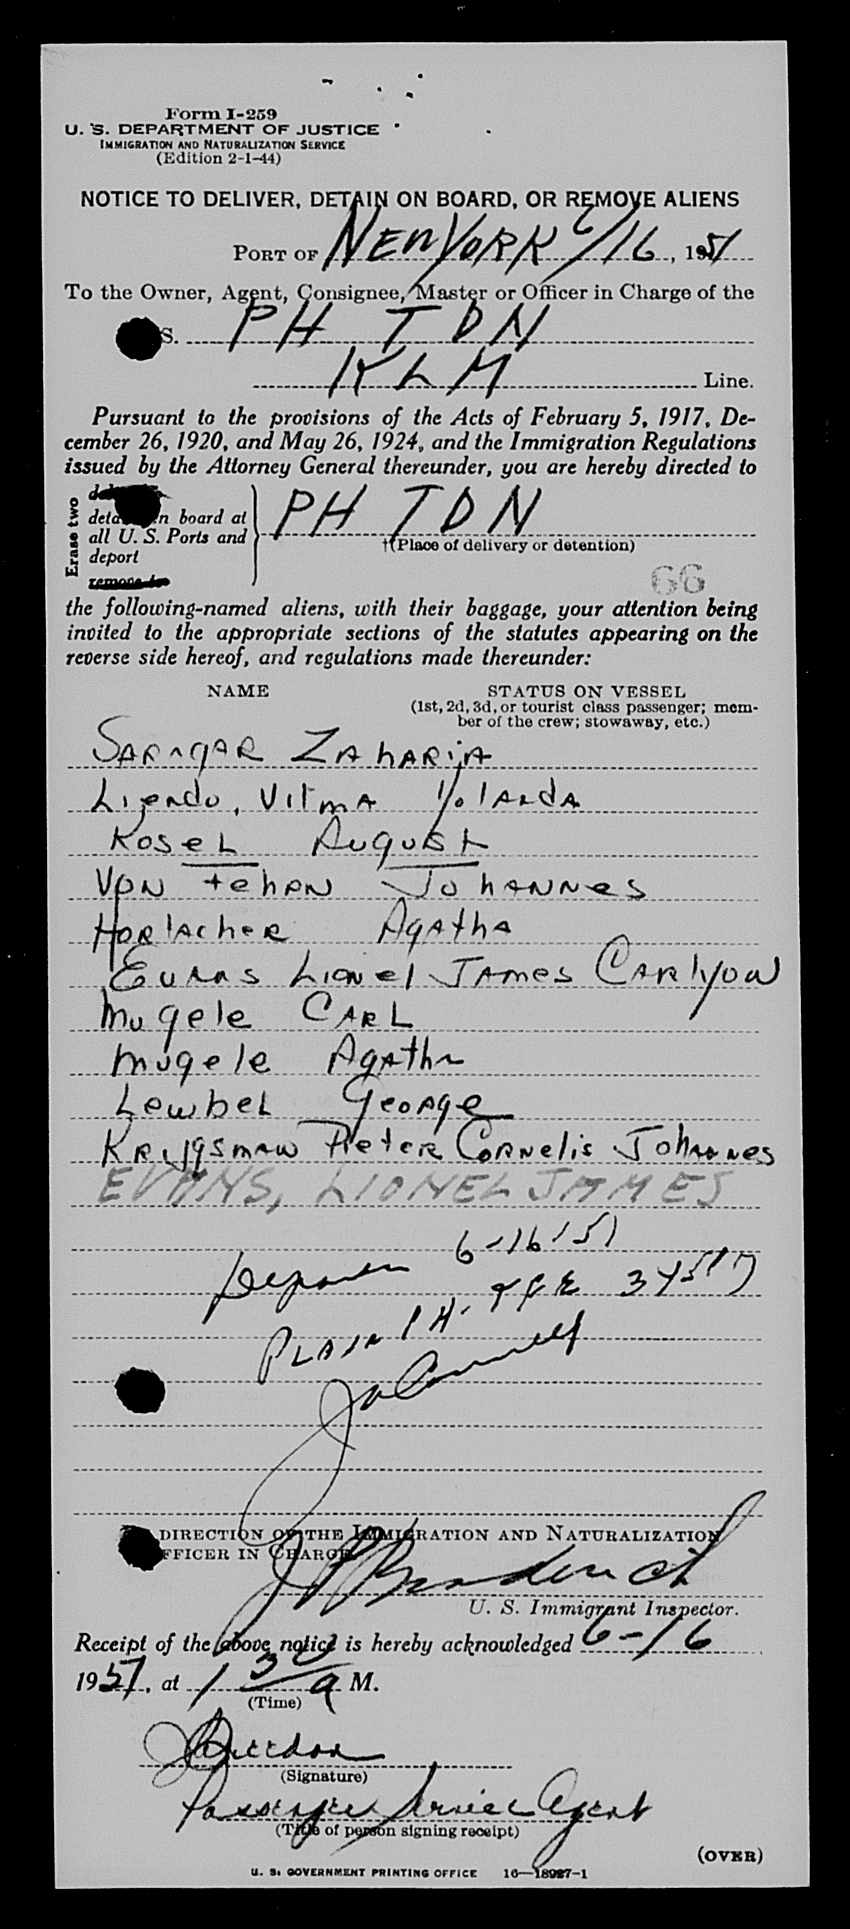 Form I-259
U. S. DEPARTMENT OF JUSTICE
IMMIGRATION AND NATURALIZATION SERVICE
(Edition 2-1-44)
NOTICE TO DELIVER, DETAIN ON BOARD, OR REMOVE ALIENS
PORT OF NEW YORK 6/16, 1951
To the Owner, Agent, Consignee, Master or Officer in Charge of the
S. PH TDN
KLM Line.
Pursuant to the provisions of the Acts of February 5, 1917, De-
cember 26, 1920, and May 26, 1924, and the Immigration Regulations
issued by the Attorney General thereunder, you are hereby directed to
Erase two
detain on board at
all U. S. Ports and
deport
remove to
PH TDN
†(Place of delivery or detention)
66
the following-named aliens, with their baggage, your attention being
invited to the appropriate sections of the statutes appearing on the
reverse side hereof, and regulations made thereunder:
NAME STATUS ON VESSEL
(1st, 2d, 3d, or tourist class passenger; mem-
ber of the crew; stowaway, etc.)
ZAHARIA
Liendo, Vilma Yolanda
Kosel August
Von Johannes
Horlacher Agatha
Evans Lionel James Carlyon
Mugele Carl
Mugele Agatha
Lewbel George
Krijgsman Pieter Cornelis Johannes
EVANS, LIONEL JAMES
6-16-51
PLAIN PH-
DIRECTION OF THE IMMIGRATION AND NATURALIZATION
OFFICER IN CHARGE
U. S. Immigrant Inspector.
Receipt of the above notice is hereby acknowledged 6-16
1951, at 1 30 a M.
(Time)
(Signature)
Passenger Service Agent
(Title of person signing receipt)
(OVER)
U. S. GOVERNMENT PRINTING OFFICE 16—18927-1